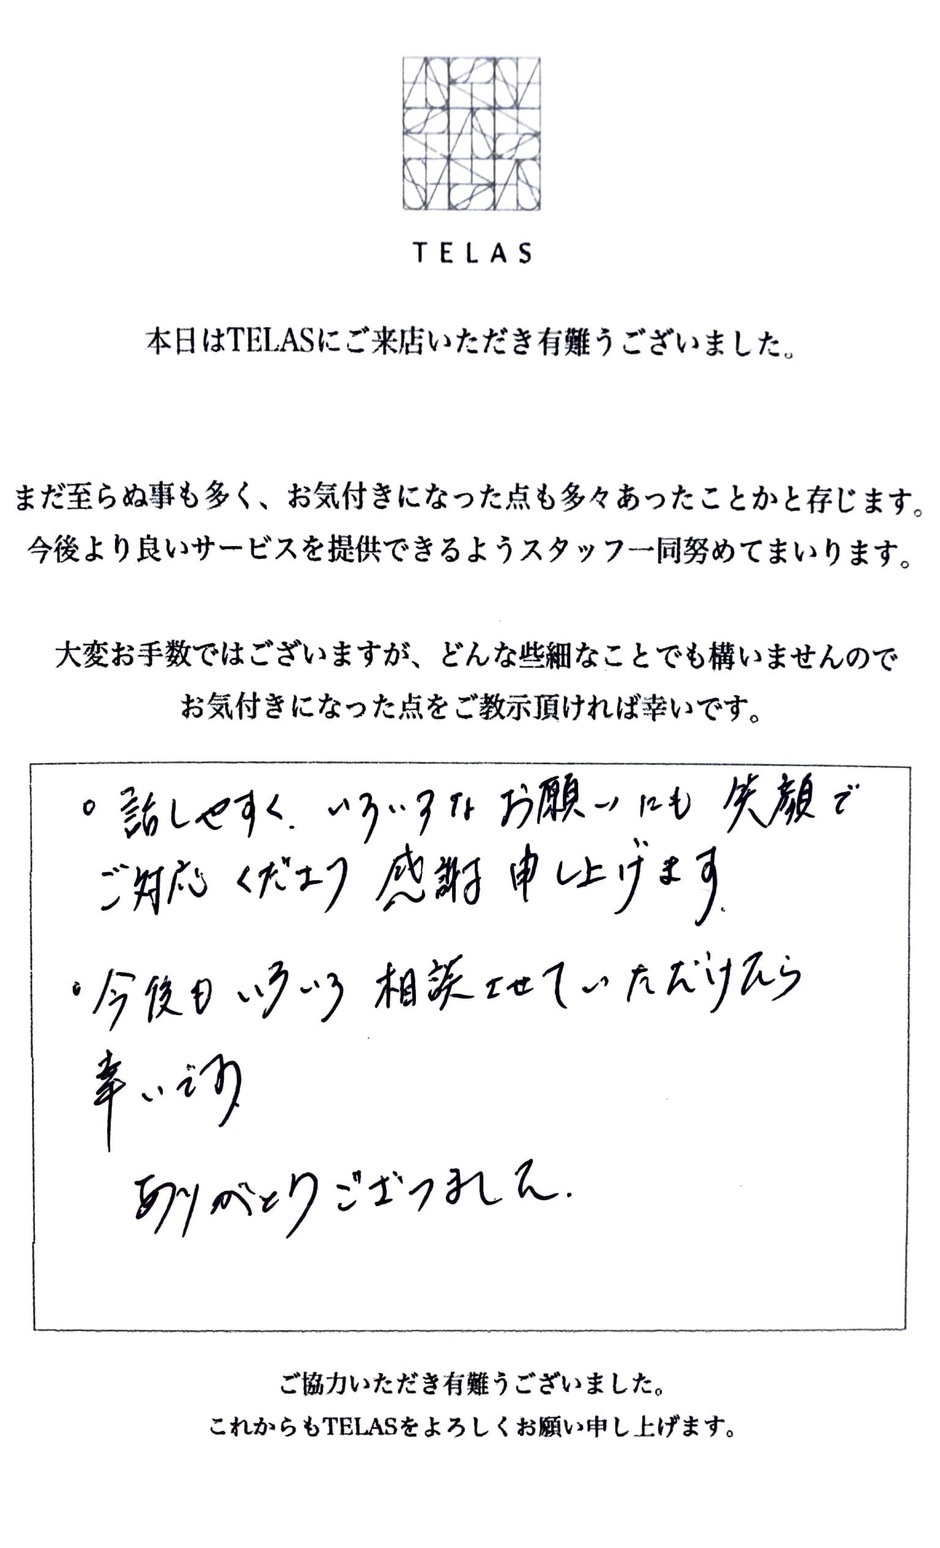 TELAS
本日はTELASにご来店いただき有難うございました。
まだ至らぬ事も多く、お気付きになった点も多々あったことかと存じます。
今後より良いサービスを提供できるようスタッフ一同努めてまいります。
大変お手数ではございますが、どんな些細なことでも構いませんので
お気付きになった点をご教示頂ければ幸いです。
○ 話しやすく、いろいろなお願いにも 笑顔で
ご対応くださり 感謝申し上げます。
・今後もいろいろ相談させていただけたら
幸いです
ありがとうございました.
ご協力いただき有難うございました。
これからもTELASをよろしくお願い申し上げます。